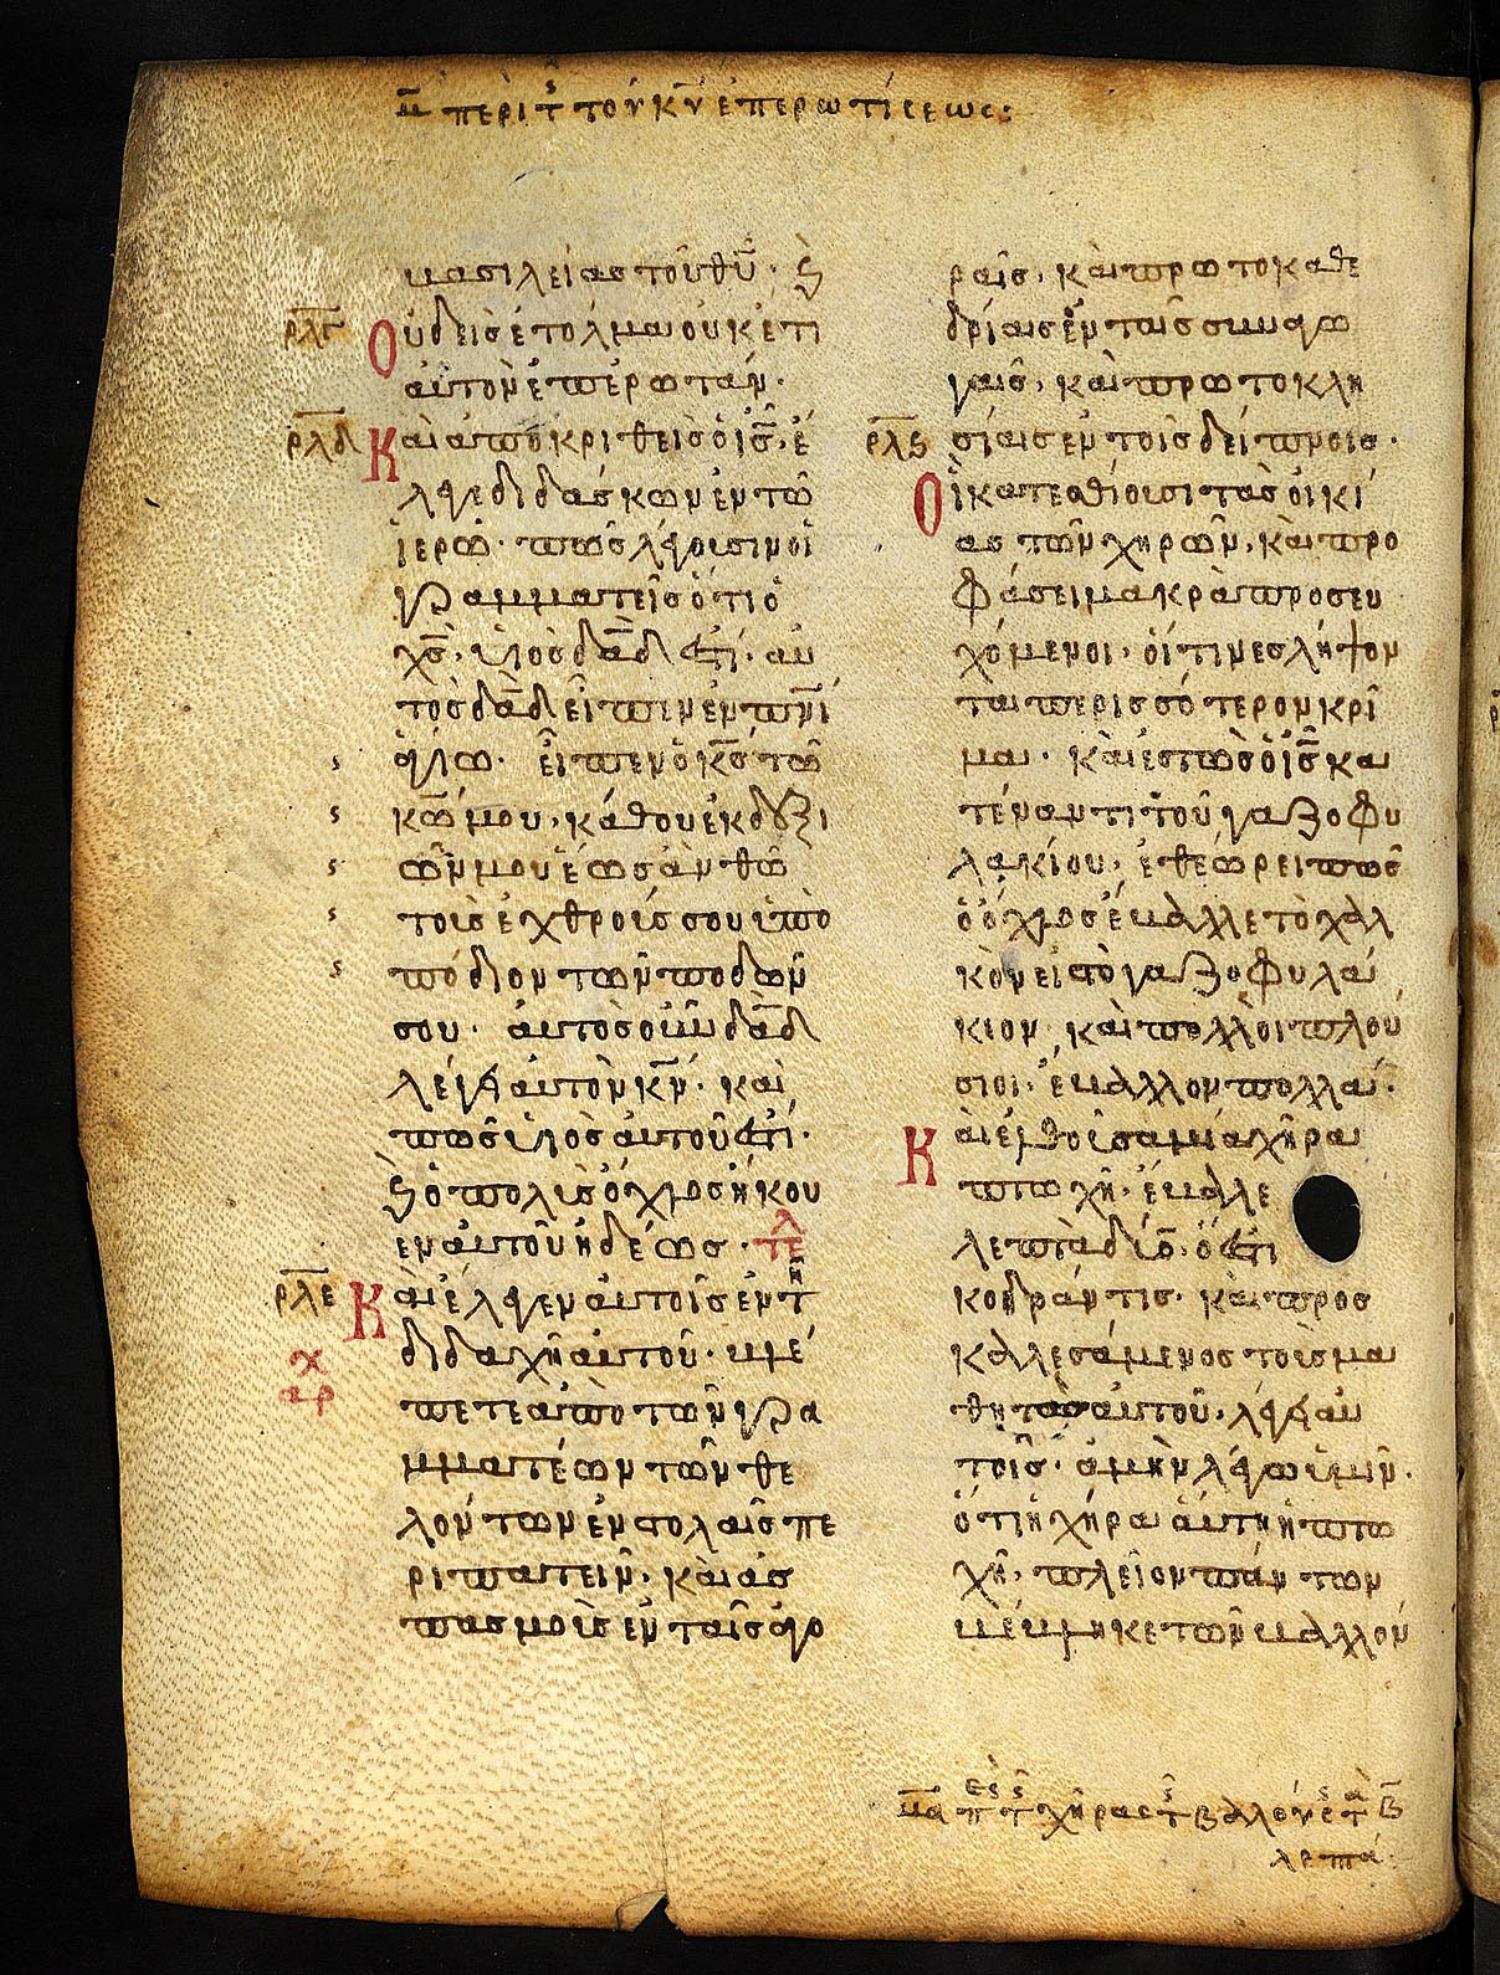 μ̅ περὶ τ̑ του κυ̅ ἐπερωτίσεως:
βασιλείας τοῦ θυ̅· ϗ
ρλγ Οὐδεὶς ἐτόλμα οὐκέτι
αὐτὸν ἐπερωτάν·
ρλδ Καὶ ἀποκριθεὶς ὁ ις̅, ἔ
λεγε διδάσκων ἐν τῶ
ἱερῶ· πῶς λέγουσιν οἱ
γραμματεῖς ὅτι ὁ
χς̅, υἱὸς δα̅δ ἐστί· αυ
τὸς δα̅δ εἶπιν ἐν πνι̅
ἁγίω· εἶπεν ὁ κς̅ τῶ
κω̅ μου, κάθου ἐκ δεξι
ῶν μου ἕως ἂν θῶ
τοὺς ἐχθρούς σου ὑπὸ
πόδιον τῶν ποδῶν
σου· αὐτὸς οὖν δα̅δ
λέγει αὐτὸν κν̅· καὶ
πῶς υἱὸς αὐτοῦ ἐστί·
ϗ ὁ πολὺς ὄχλος ἤκου
εν αὐτοῦ ἡδέως· τελ
ρλε Καὶ ἔλεγεν αὐτοῖς ἐν τῆ
διδαχῆ αὐτοῦ· βλέ
πετε ἀπὸ τῶν γρα
μματέων τῶν θε
λόντων ἐν στολαῖς πε
ριπατεῖν, καὶ ἀσ
πασμοὺς ἐν ταῖς ἀγο
χ
αρ
ραῖς, καὶ πρωτοκαθε
δρίας ἐν ταῖς συναγω
γαῖς, καὶ πρωτοκλη
ρλς σίας ἐν τοῖς δείπνοις·
Οἱ κατεσθίουσι τὰς οἰκί
ας τῶν χηρῶν, καὶ προ
φάσει μακρὰ προσευ
χόμενοι· οἵτινες λήψον
ται περισσότερον κρῖ
μα· καὶ ἑστὼς ὁ ις̅ κα
τέναντι τοῦ γαζοφυ
λακίου, ἐθεώρει πῶς
ὁ ὄχλος ἔβαλλε τὸ χαλ
κὸν εἰς τὸ γαζοφυλά
κιον, καὶ πολλοὶ πλού
σιοι· ἔβαλλον πολλά·
Καὶ ἐλθοῦσα μία χῆρα
πτωχὴ· ἔβαλλε
λεπτὰ δύο· ὅ ἐστι
κονδράντις· καὶ προς
καλεσάμενος τοὺς μα
θητὰς αὐτοῦ, λέγει αυ
τοῖς· ἀμὴν λέγω ὑμῖν·
ὅτι ἡ χήρα αὕτη ἡ πτω
χὴ, πλεῖον πάντων
βέβληκε τῶν βαλλόν